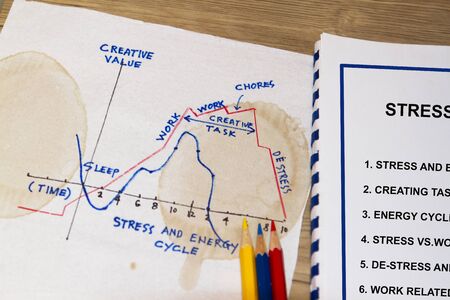 CREATIVE
VALUE
CHORES
WORK
WORK
CREATIVE
TASK
SLEEP
DE-STRESS
(TIME)
2 4 6 8 10 12 2 4 6 8 10
STRESS AND ENERGY
CYCLE
STRESS
1. STRESS AND E
2. CREATING TAS
3. ENERGY CYCL
4. STRESS VS.WO
5. DE-STRESS AN
6. WORK RELATED